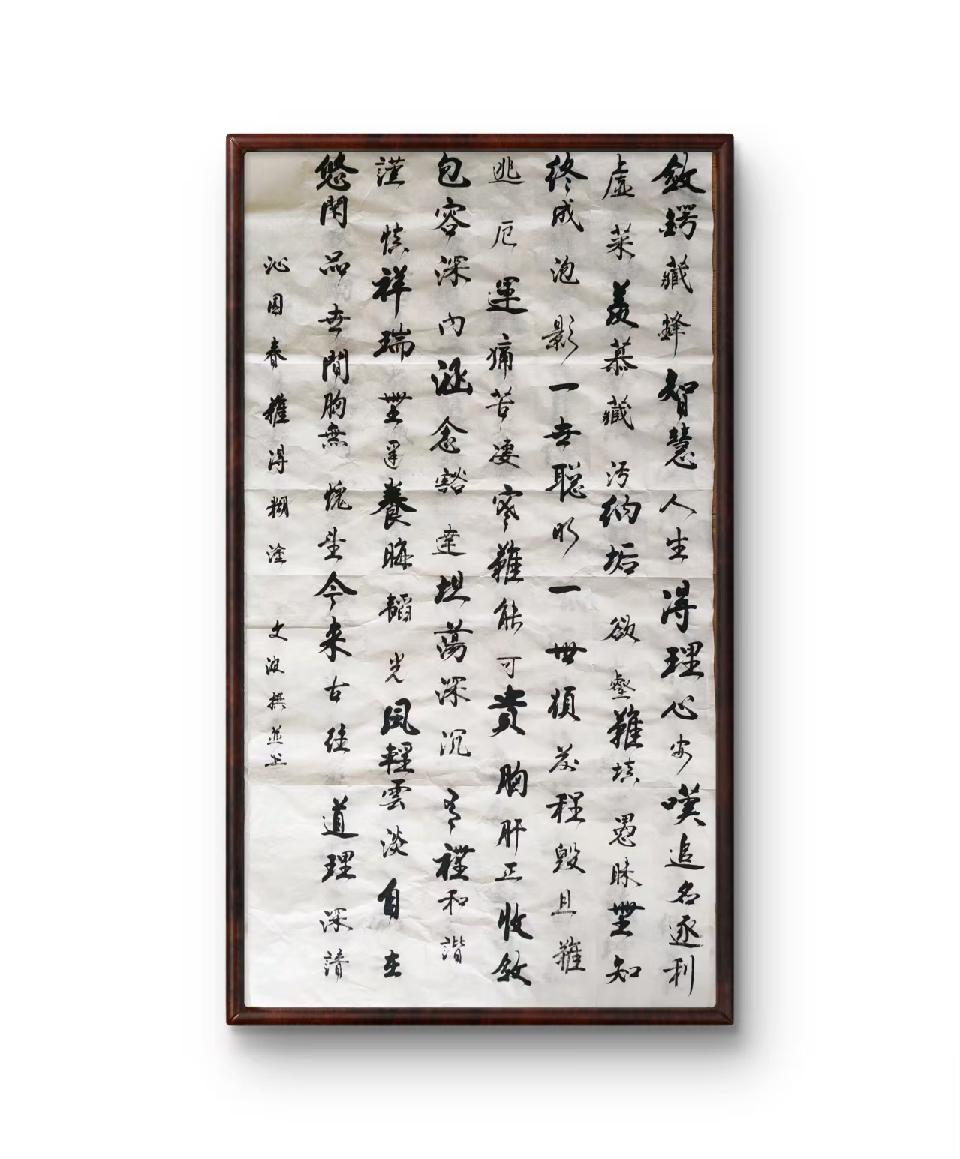 斂鍔藏鋒智慧人生得理心安嘆追名逐利
虛榮羨慕藏污納垢欲壑難填愚昧無知
終成泡影一世聰明一世煩前程毀且難
逃厄運痛苦淒寥難能可貴胸肝正收斂
包容深內涵念豁達坦蕩深沉有禮和諧
謹慎祥瑞無邊養晦韜光風輕雲淡自在
悠閑品世間胸無愧望今來古往道理深諳
沁園春難得糊塗 文波撰並書